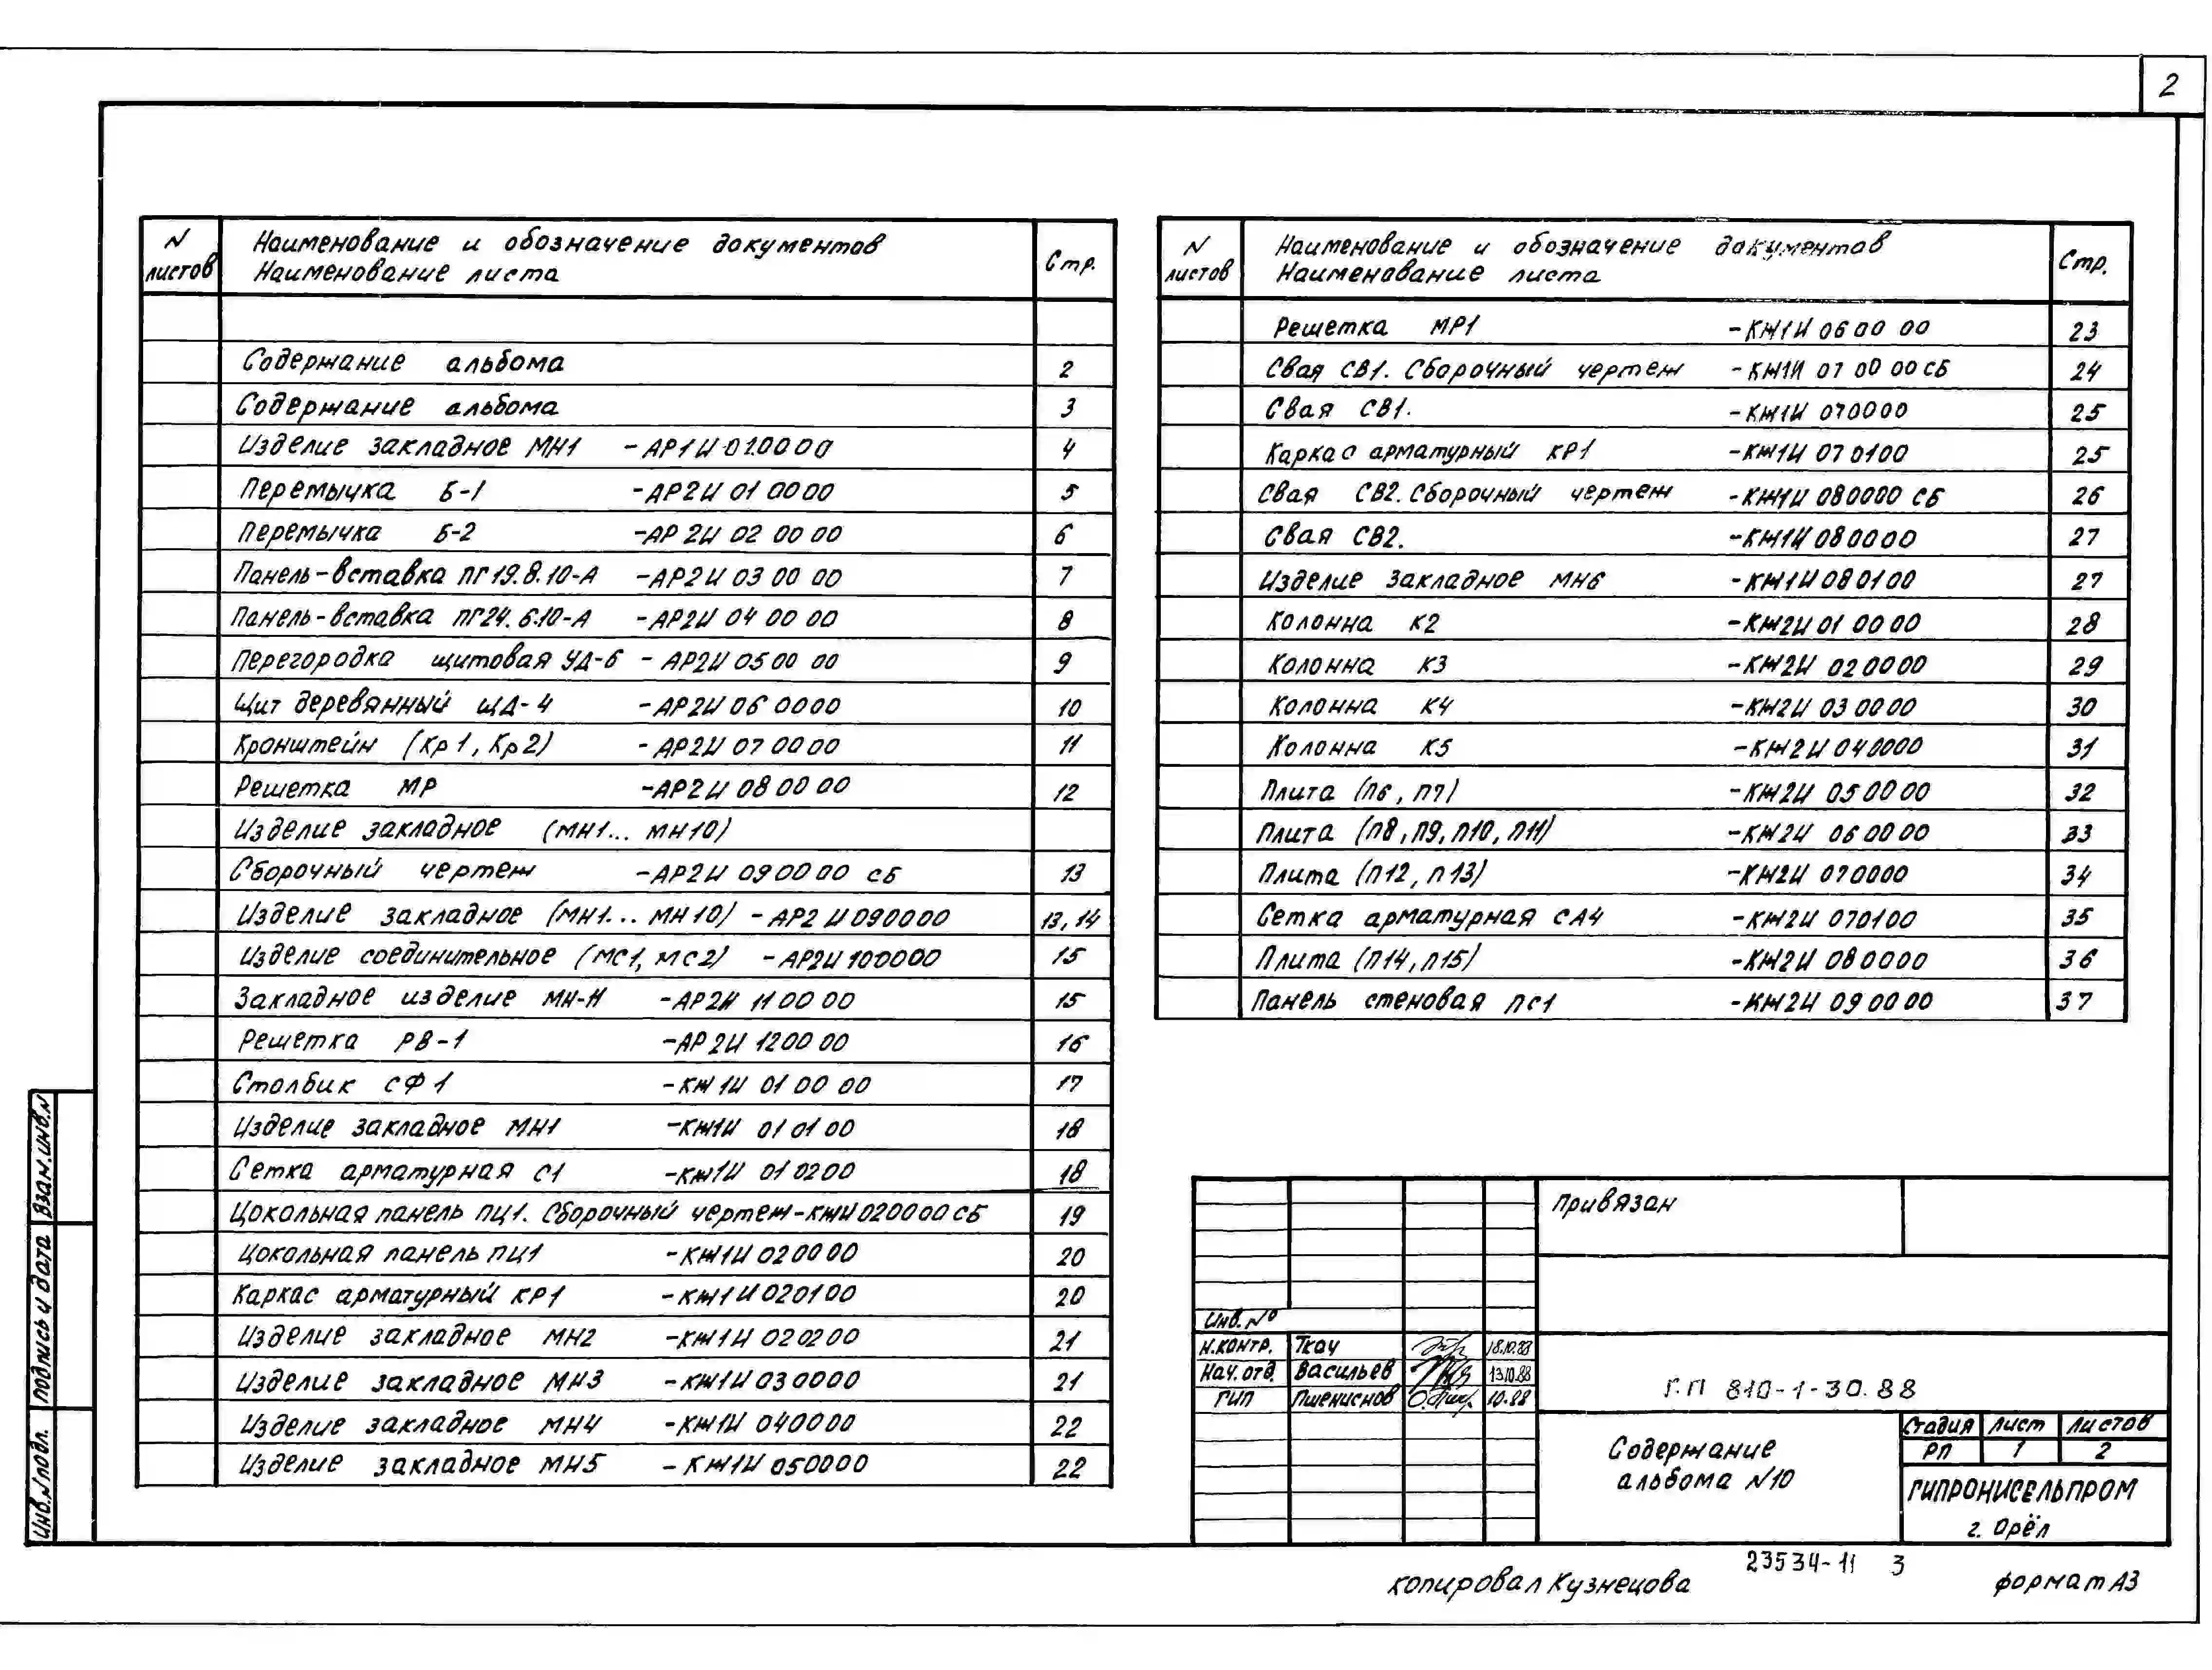 2
N листов
Наименование и обозначение документов
Наименование листа
Стр.
Содержание альбома 2
Содержание альбома 3
Изделие закладное МН1 -АР1И 010000 4
Перемычка Б-1 -АР2И 01 0000 5
Перемычка Б-2 -АР 2И 02 00 00 6
Панель-вставка ПГ19.8.10-А -АР2И 03 00 00 7
Панель-вставка ПГ24.6.10-А -АР2И 04 00 00 8
Перегородка щитовая УД-6 - АР2И 0500 00 9
Щит деревянный ЩД-4 -АР2И 06 0000 10
Кронштейн (Кр1, Кр2) -АР2И 07 0000 11
Решетка МР -АР2И 08 00 00 12
Изделие закладное (МН1... МН10)
Сборочный чертеж -АР2И 090000 СБ 13
Изделие закладное (МН1... МН10) - АР2 И 090000 13, 14
Изделие соединительное (МС1, МС2) -АР2И 100000 15
Закладное изделие МН-11 -АР2И 11 00 00 15
Решетка РВ-1 -АР 2И 1200 00 16
Столбик СФ1 -КЖ 1И 01 00 00 17
Изделие закладное МН1 -КЖ1И 01 01 00 18
Сетка арматурная С1 -КЖ1И 01 0200 18
Цокольная панель ПЦ1. Сборочный чертеж-КЖИ 020000 СБ 19
Цокольная панель ПЦ1 -КЖ1И 020000 20
Каркас арматурный КР1 -КЖ1И 020100 20
Изделие закладное МН2 -КЖ1И 020200 21
Изделие закладное МН3 -КЖ1И 030000 21
Изделие закладное МН4 -КЖ1И 040000 22
Изделие закладное МН5 - КЖ1И 050000 22
N листов
Наименование и обозначение документов
Наименование листа
Стр.
Решетка МР1 -КЖ1И 0600 00 23
Свая СВ1. Сборочный чертеж -КЖ1И 07 00 00 СБ 24
Свая СВ1. -КЖ1И 070000 25
Каркас арматурный КР1 -КЖ1И 070100 25
Свая СВ2. Сборочный чертеж -КЖ1И 080000 СБ 26
Свая СВ2. -КЖ1И 080000 27
Изделие закладное МН6 -КЖ1И 080100 27
Колонна К2 -КЖ2И 01 00 00 28
Колонна К3 -КЖ2И 020000 29
Колонна К4 -КЖ2И 03 0000 30
Колонна К5 -КЖ2И 040000 31
Плита (П6, П7) -КЖ2И 05 00 00 32
Плита (П8, П9, П10, П11) -КЖ2И 06 00 00 33
Плита (П12, П13) -КЖ2И 070000 34
Сетка арматурная СА4 -КЖ2И 070100 35
Плита (П14, П15) -КЖ2И 08 0000 36
Панель стеновая ПС1 -КЖ2И 09 00 00 37
Взам. инв. N
Подпись и дата
Инв. N подл.
Привязан
Инв. №
Н.контр. Ткач 18.10.88
Нач. отд. Васильев 13.10.88
ГИП Пшениснов 10.88
Т.П 810-1-30.88
Содержание альбома N10
Стадия Лист Листов
РП 1 2
ГИПРОНИСЕЛЬПРОМ
г. Орёл
23534-11 3
Копировал Кузнецова
формат А3